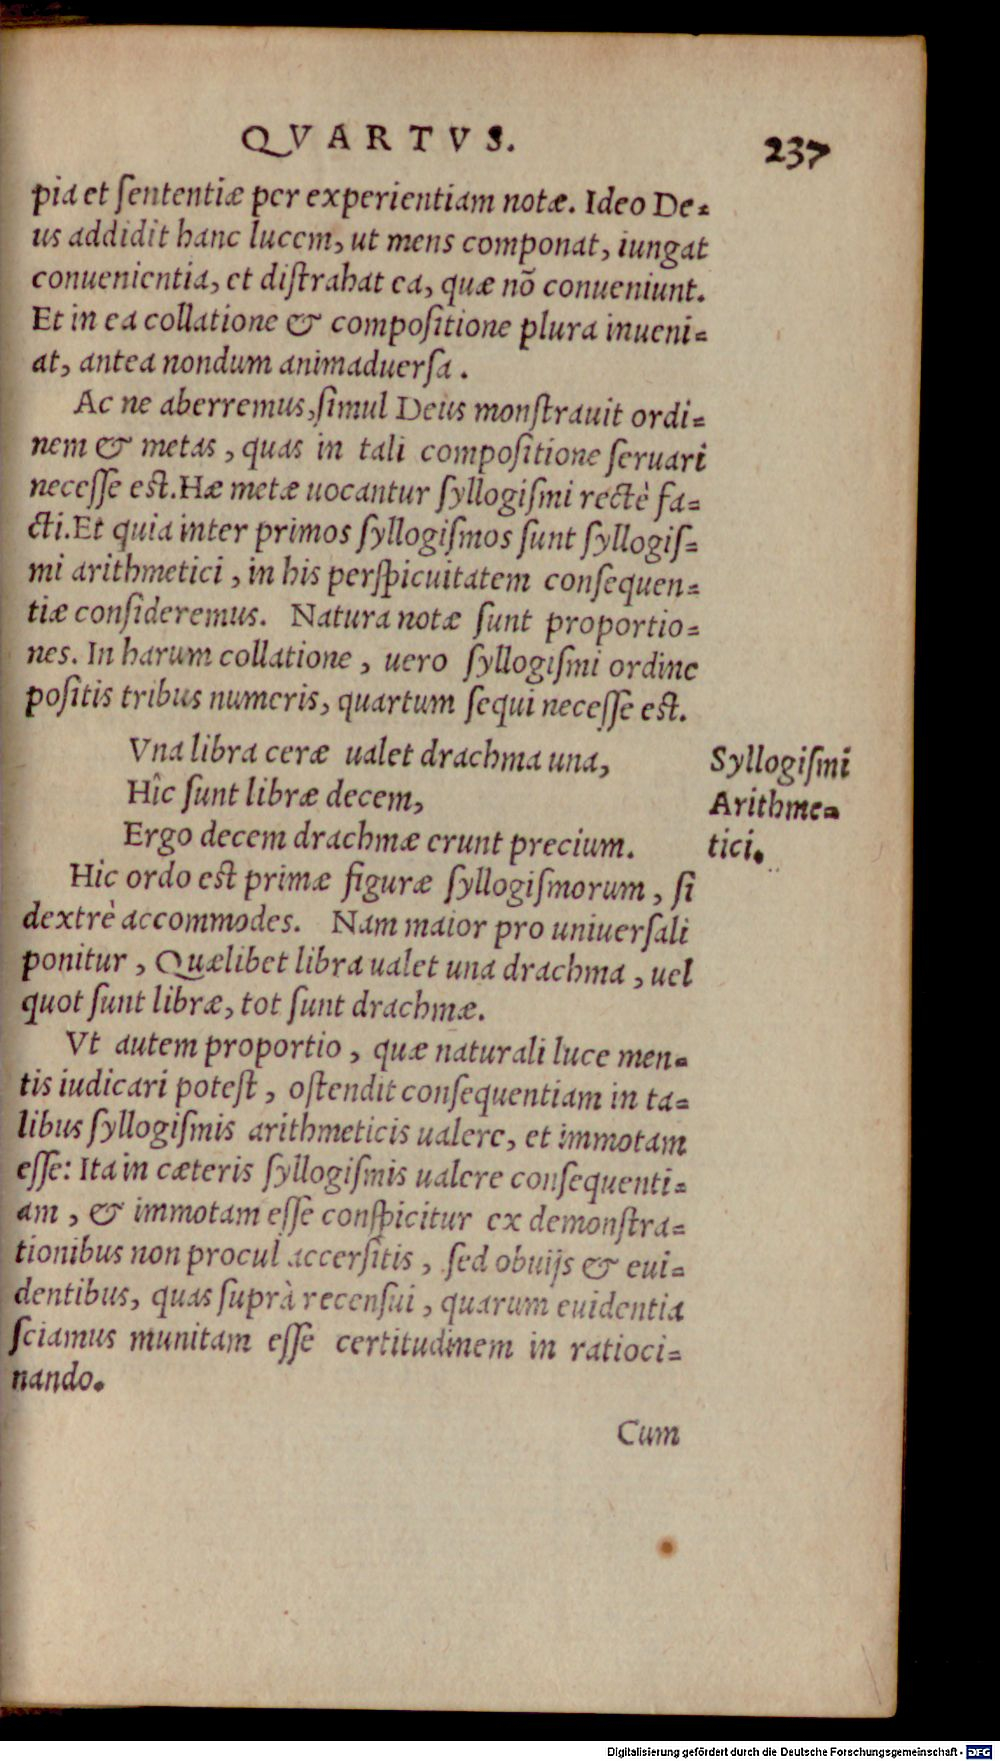 QVARTVS.
237
pia et ſententiæ per experientiam notæ. Ideo De=
us addidit hanc lucem, ut mens componat, iungat
conuenientia, et diſtrahat ea, quæ nõ conueniunt.
Et in ea collatione & compoſitione plura inueni=
at, antea nondum animaduerſa.
Ac ne aberremus, ſimul Deus monſtrauit ordi=
nem & metas, quas in tali compoſitione ſeruari
neceſſe eſt. Hæ metæ uocantur ſyllogiſmi rectè fa=
cti. Et quia inter primos ſyllogiſmos ſunt ſyllogiſ=
mi arithmetici, in his perſpicuitatem conſequen=
tiæ conſideremus. Natura notæ ſunt proportio=
nes. In harum collatione, uero ſyllogiſmi ordine
poſitis tribus numeris, quartum ſequi neceſſe eſt.
Vna libra ceræ ualet drachma una,
Hîc ſunt libræ decem,
Ergo decem drachmæ erunt precium.
Syllogiſmi
Arithme=
tici.
Hic ordo eſt primæ figuræ ſyllogiſmorum, ſi
dextrè accommodes. Nam maior pro uniuerſali
ponitur, Quælibet libra ualet una drachma, uel
quot ſunt libræ, tot ſunt drachmæ.
Vt autem proportio, quæ naturali luce men=
tis iudicari poteſt, oſtendit conſequentiam in ta=
libus ſyllogiſmis arithmeticis ualere, et immotam
eſſe: Ita in cæteris ſyllogiſmis ualere conſequenti=
am, & immotam eſſe conſpicitur ex demonſtra=
tionibus non procul accerſitis, ſed obuijs & eui=
dentibus, quas ſuprà recenſui, quarum euidentia
ſciamus munitam eſſe certitudinem in ratioci=
nando.
Cum
Digitalisierung gefördert durch die Deutsche Forschungsgemeinschaft - DFG